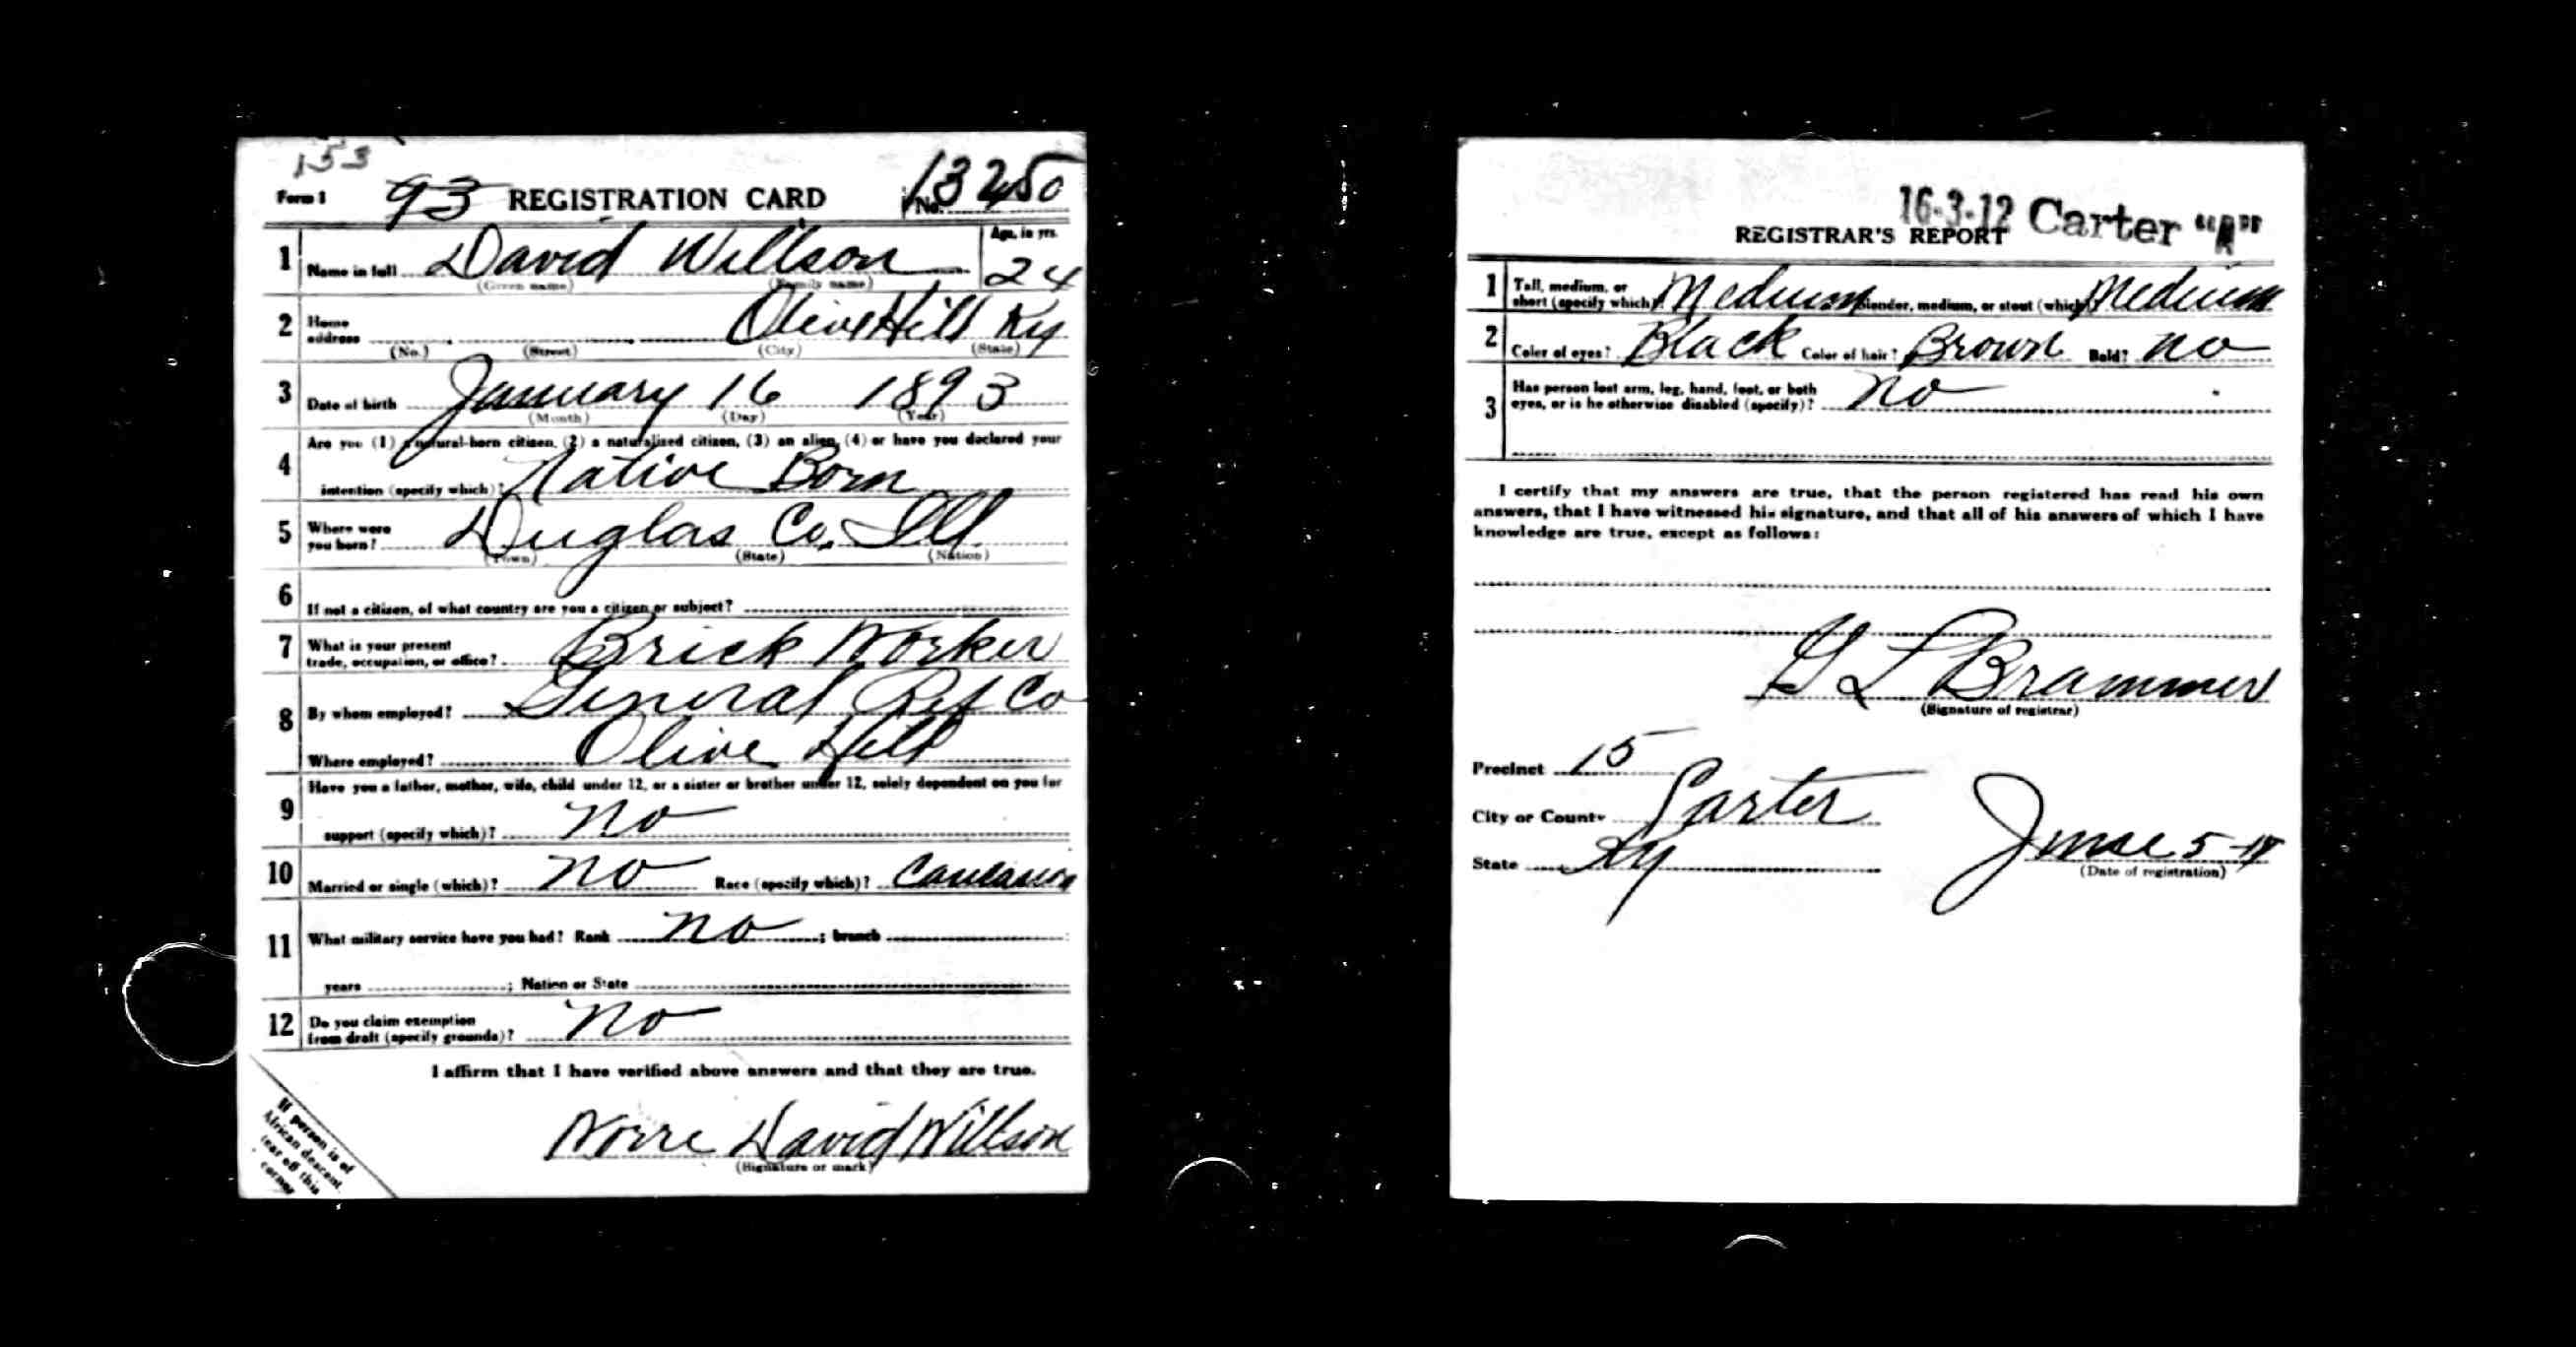 153
Form 1 93 REGISTRATION CARD No. 13250
1 Name in full David Willson Age, in yrs. 24
(Given name) (Family name)
2 Home address Olive Hill Ky
(No.) (Street) (City) (State)
3 Date of birth January 16 1893
(Month) (Day) (Year)
Are you (1) a natural-born citizen, (2) a naturalized citizen, (3) an alien, (4) or have you declared your
4 intention (specify which)? Native Born
5 Where were you born? Duglas Co. Ill.
(Town) (State) (Nation)
6 If not a citizen, of what country are you a citizen or subject?
7 What is your present trade, occupation, or office? Brick Worker
8 By whom employed? General Ref Co
Where employed? Olive Hill
Have you a father, mother, wife, child under 12, or a sister or brother under 12, solely dependent on you for
9 support (specify which)? no
10 Married or single (which)? no Race (specify which)? Caucasion
11 What military service have you had? Rank no ; branch
years ; Nation or State
12 Do you claim exemption from draft (specify grounds)? no
I affirm that I have verified above answers and that they are true.
David Willson
(Signature or mark)
If person is of
African descent,
tear off this
corner
16-3-12 Carter "A"
REGISTRAR'S REPORT
1 Tall, medium, or short (specify which)? Medium Slender, medium, or stout (which)? Medium
2 Color of eyes? Black Color of hair? Brown Bald? no
3 Has person lost arm, leg, hand, foot, or both eyes, or is he otherwise disabled (specify)? no
I certify that my answers are true, that the person registered has read his own
answers, that I have witnessed his signature, and that all of his answers of which I have
knowledge are true, except as follows:
G L Brammer
(Signature of registrar)
Precinct 15
City or County Carter
State Ky June 5-17
(Date of registration)